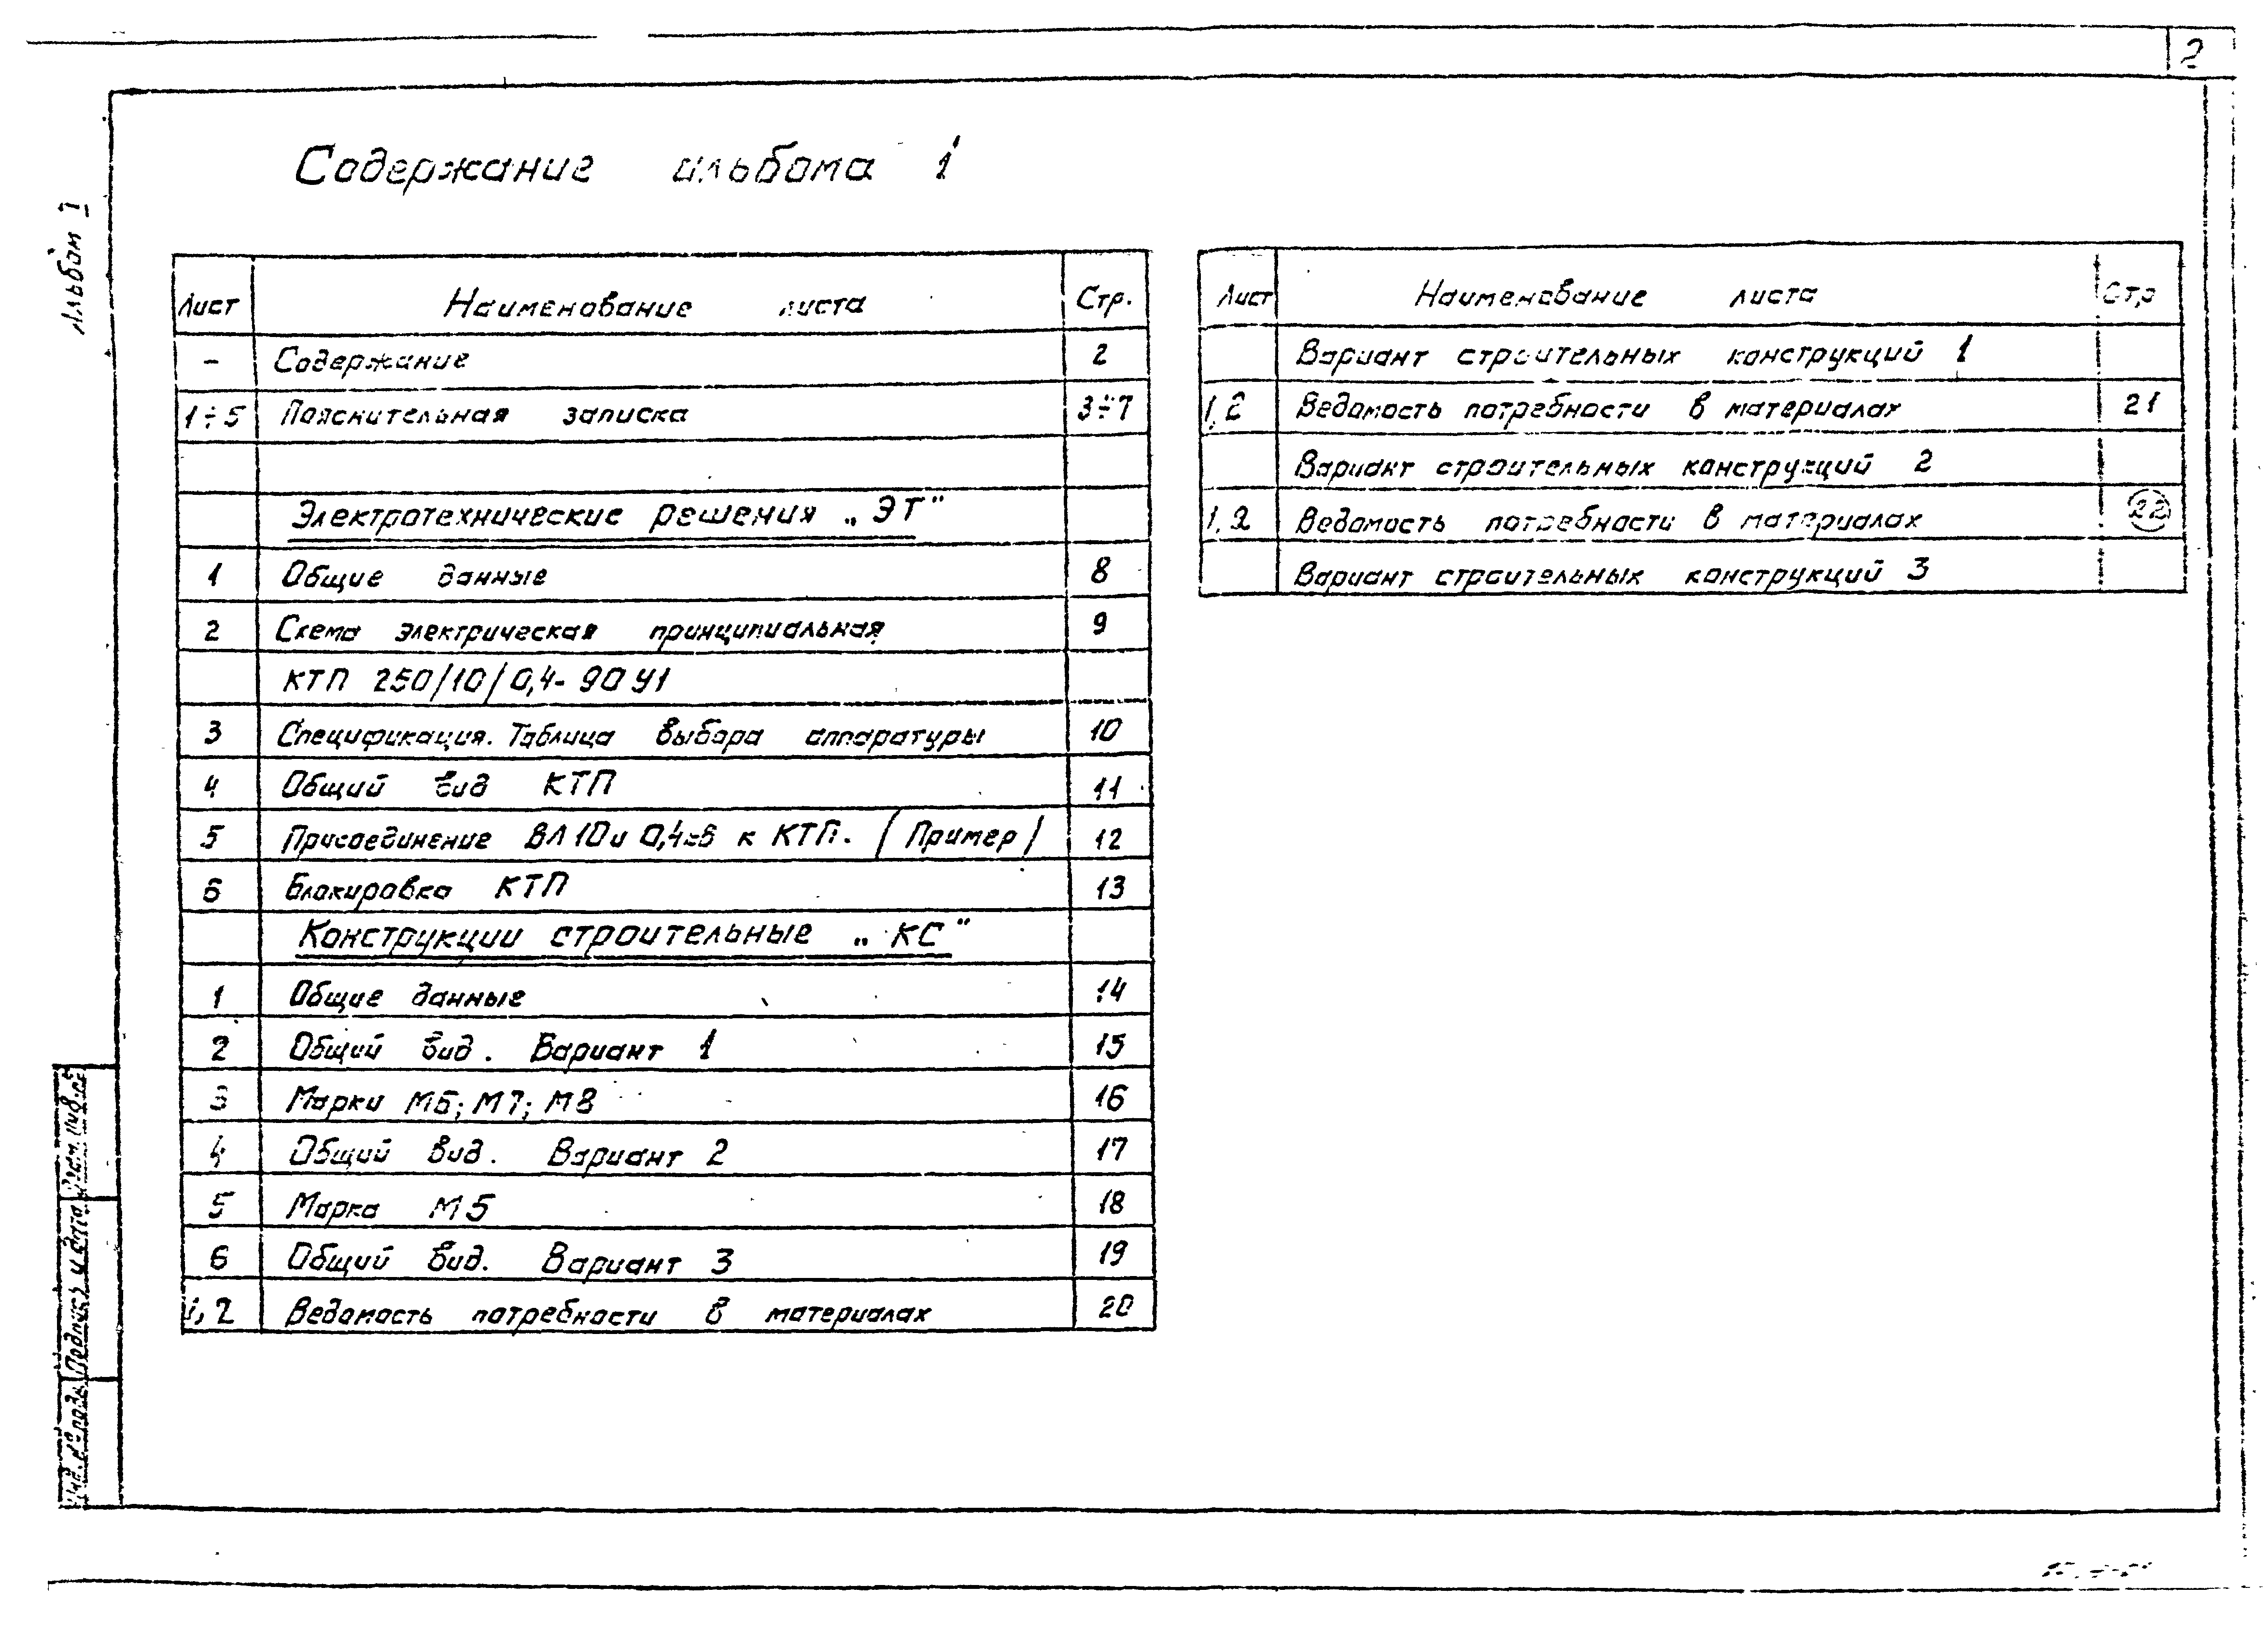 2
Содержание альбома 1
Альбом I
Лист Наименование листа Стр.
- Содержание 2
1÷5 Пояснительная записка 3÷7
Электротехнические решения „ЭТ"
1 Общие данные 8
2 Схема электрическая принципиальная 9
КТП 250/10/0,4-90У1
3 Спецификация. Таблица выбора аппаратуры 10
4 Общий вид КТП 11
5 Присоединение ВЛ 10 и 0,4 кВ к КТП. (Пример) 12
6 Блокировка КТП 13
Конструкции строительные „КС"
1 Общие данные 14
2 Общий вид. Вариант 1 15
3 Марки М6; М7; М8 16
4 Общий вид. Вариант 2 17
5 Марка М5 18
6 Общий вид. Вариант 3 19
1,2 Ведомость потребности в материалах 20
Лист Наименование листа Стр
Вариант строительных конструкций 1
1,2 Ведомость потребности в материалах 21
Вариант строительных конструкций 2
1,2 Ведомость потребности в материалах 22
Вариант строительных конструкций 3
Взам. инв. №
Подпись и дата
Инв. № подл.